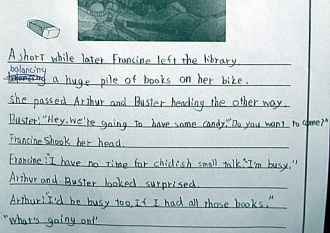 A short while later Francine left the library.
balancing
a huge pile of books on her bike.
She passed Arthur and Buster heading the other way.
Buster: "Hey. we're going to have some candy." "Do you want to come?"
Francine Shook her head.
Francine: "I have no time for chidish small talk. "I'm busy."
Arthur and Buster looked surprised.
Arthur: "I'd be busy too, If I had all those books."
"What's going on!"